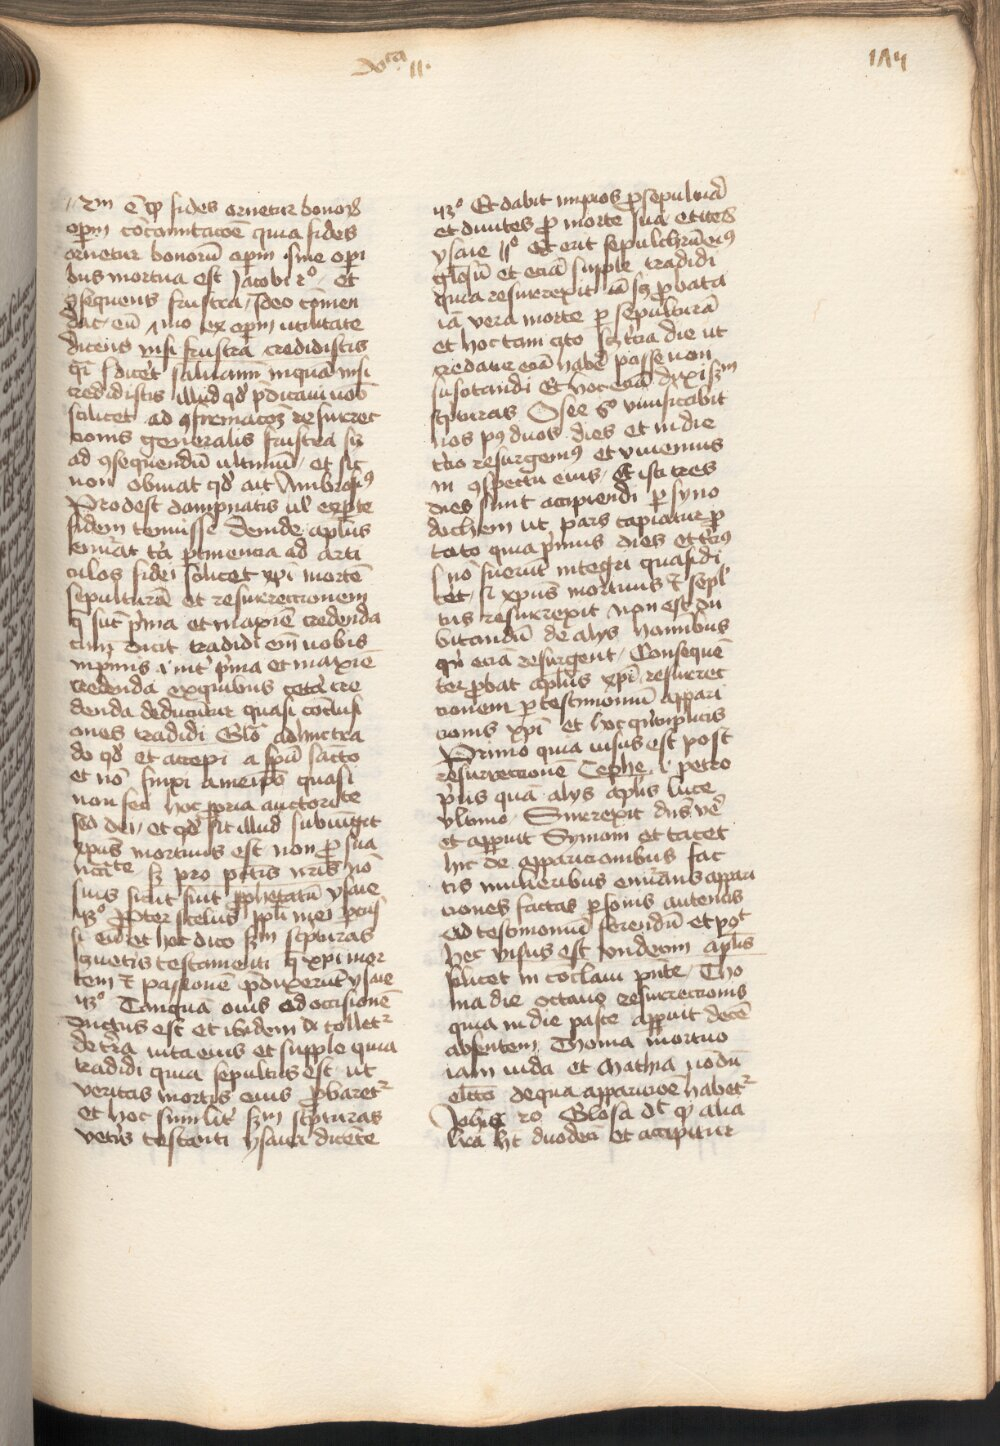 xᵃ 11.
114
2m ē qꝫ fides ornetur bonorꝫ
opm cōcomitacōe quia fides
ornetur bonorū opm sine opi
bus mortua est Jacobi 2º et
ꝯsequens frustra Ideo cōmen
dat eū ex opm utilitate
dicens nisi frustra credidistis
qi s dicet saluamī inqua nisi
credidistis illud qd p̄dicaui uob
scilicet ad ꝯfirmacoꝫ resurrec
cionis generalis frustra sꝫ
ad ꝯsequendū ultimū et sic
non obuiat qd ait Ambrosiꝯ
Prodest dampnatis ul' exꝑte
fidem tenuisse Deinde apl̄us
enūat tria ꝑtinencia ad arti
culos fidei scilicet xpi mortē
sepulturā et resurreccionem
q̄ sūt pma et maxīe credenda
cum dicit tradidi em̄ uobis
inpmis i int' pma et maxīe
credenda ex quibus cetā cre
denda deducūnt quasi cōclusi
ones tradidi Glo adiuc tra
do qd et accepi a spū sancto
et nō finxi a meipo quasi
non sed hoc ꝓpria auctoritate
sed dei et qd sit illud subiungit
xpus mortuus est non ꝓ sua
sꝫ pro pctis nris nō
suis sicut fuit ꝓphetatū ysaie
43º ꝓpter scelus ppli mei pcuss
si eū et hoc dico scdm scpturas
ueteris testamenti q xpi mor
tem et passionē ꝓduxerūt ysaie
43º Tanquā ouis ad occisionē
ductus est et ibidem de tollet
de tra uita eius et supple quia
tradidi quia sepultus est ut
veritas mortis eius ꝓbaret
et hoc similit' scdm scpturas
vetis testamenti ysaia dicēte
43º Et dabit impios ꝓ sepultura
et diuites ꝓ morte sua et iteꝝ
ysaie 11º Et erit sepulchrū eiꝯ
glosū et eciā supple tradidi
quia resurrexit iā sꝫ ꝓbata
iā vera morte ꝑ sepulturā
et hoc tam cito scꝫ tercia die ut
credatur eciā habē posse uon
suscitandi Et hoc eciā dixi scdm
scpturas Osee 6º viuificabit
nos pꝯ duos dies et in die
tercio resurgemꝯ et viuemus
in ꝯspectu eius Et isti tres
dies sunt accipiendi ꝑ syno
dochem ut pars capiatur ꝓ
toto quia pmus dies et terciꝯ
s nō fuerūt integri quasi di
cet si xpus mortuus et sepl
tus resurrexit non est du
bitandū de alijs hominibus
qn eciā resurgent Conseque
ter ꝓbat apl̄us xpi resurrec
cionem ꝑ testimoniū appari
cionis xpi et hoc quīcuplicis
Primo quia uisus est post
resurreccionē Cephe i petro
pus quā alijs aplis luce
vltimo Surrexit dn̄s ve
et apparuit Symoni et tacet
hic de apparicionibus fac
tis mulieribus enūans appari
ciones factas ꝑsonis autentis
ad testimoniū ferendū et pot
hec visus est vndecim aplis
scilicet in coclaui pn̄te Tho
ma die octauo resurreccionis
quia in die pasce apparuit decē
absentem Thoma mortuo
iam iuda et Mathia nōdū
elcto de qua apparicioe habet
Johis 20 Glosa dt qꝫ alia
lra ht duodeci et accipitur